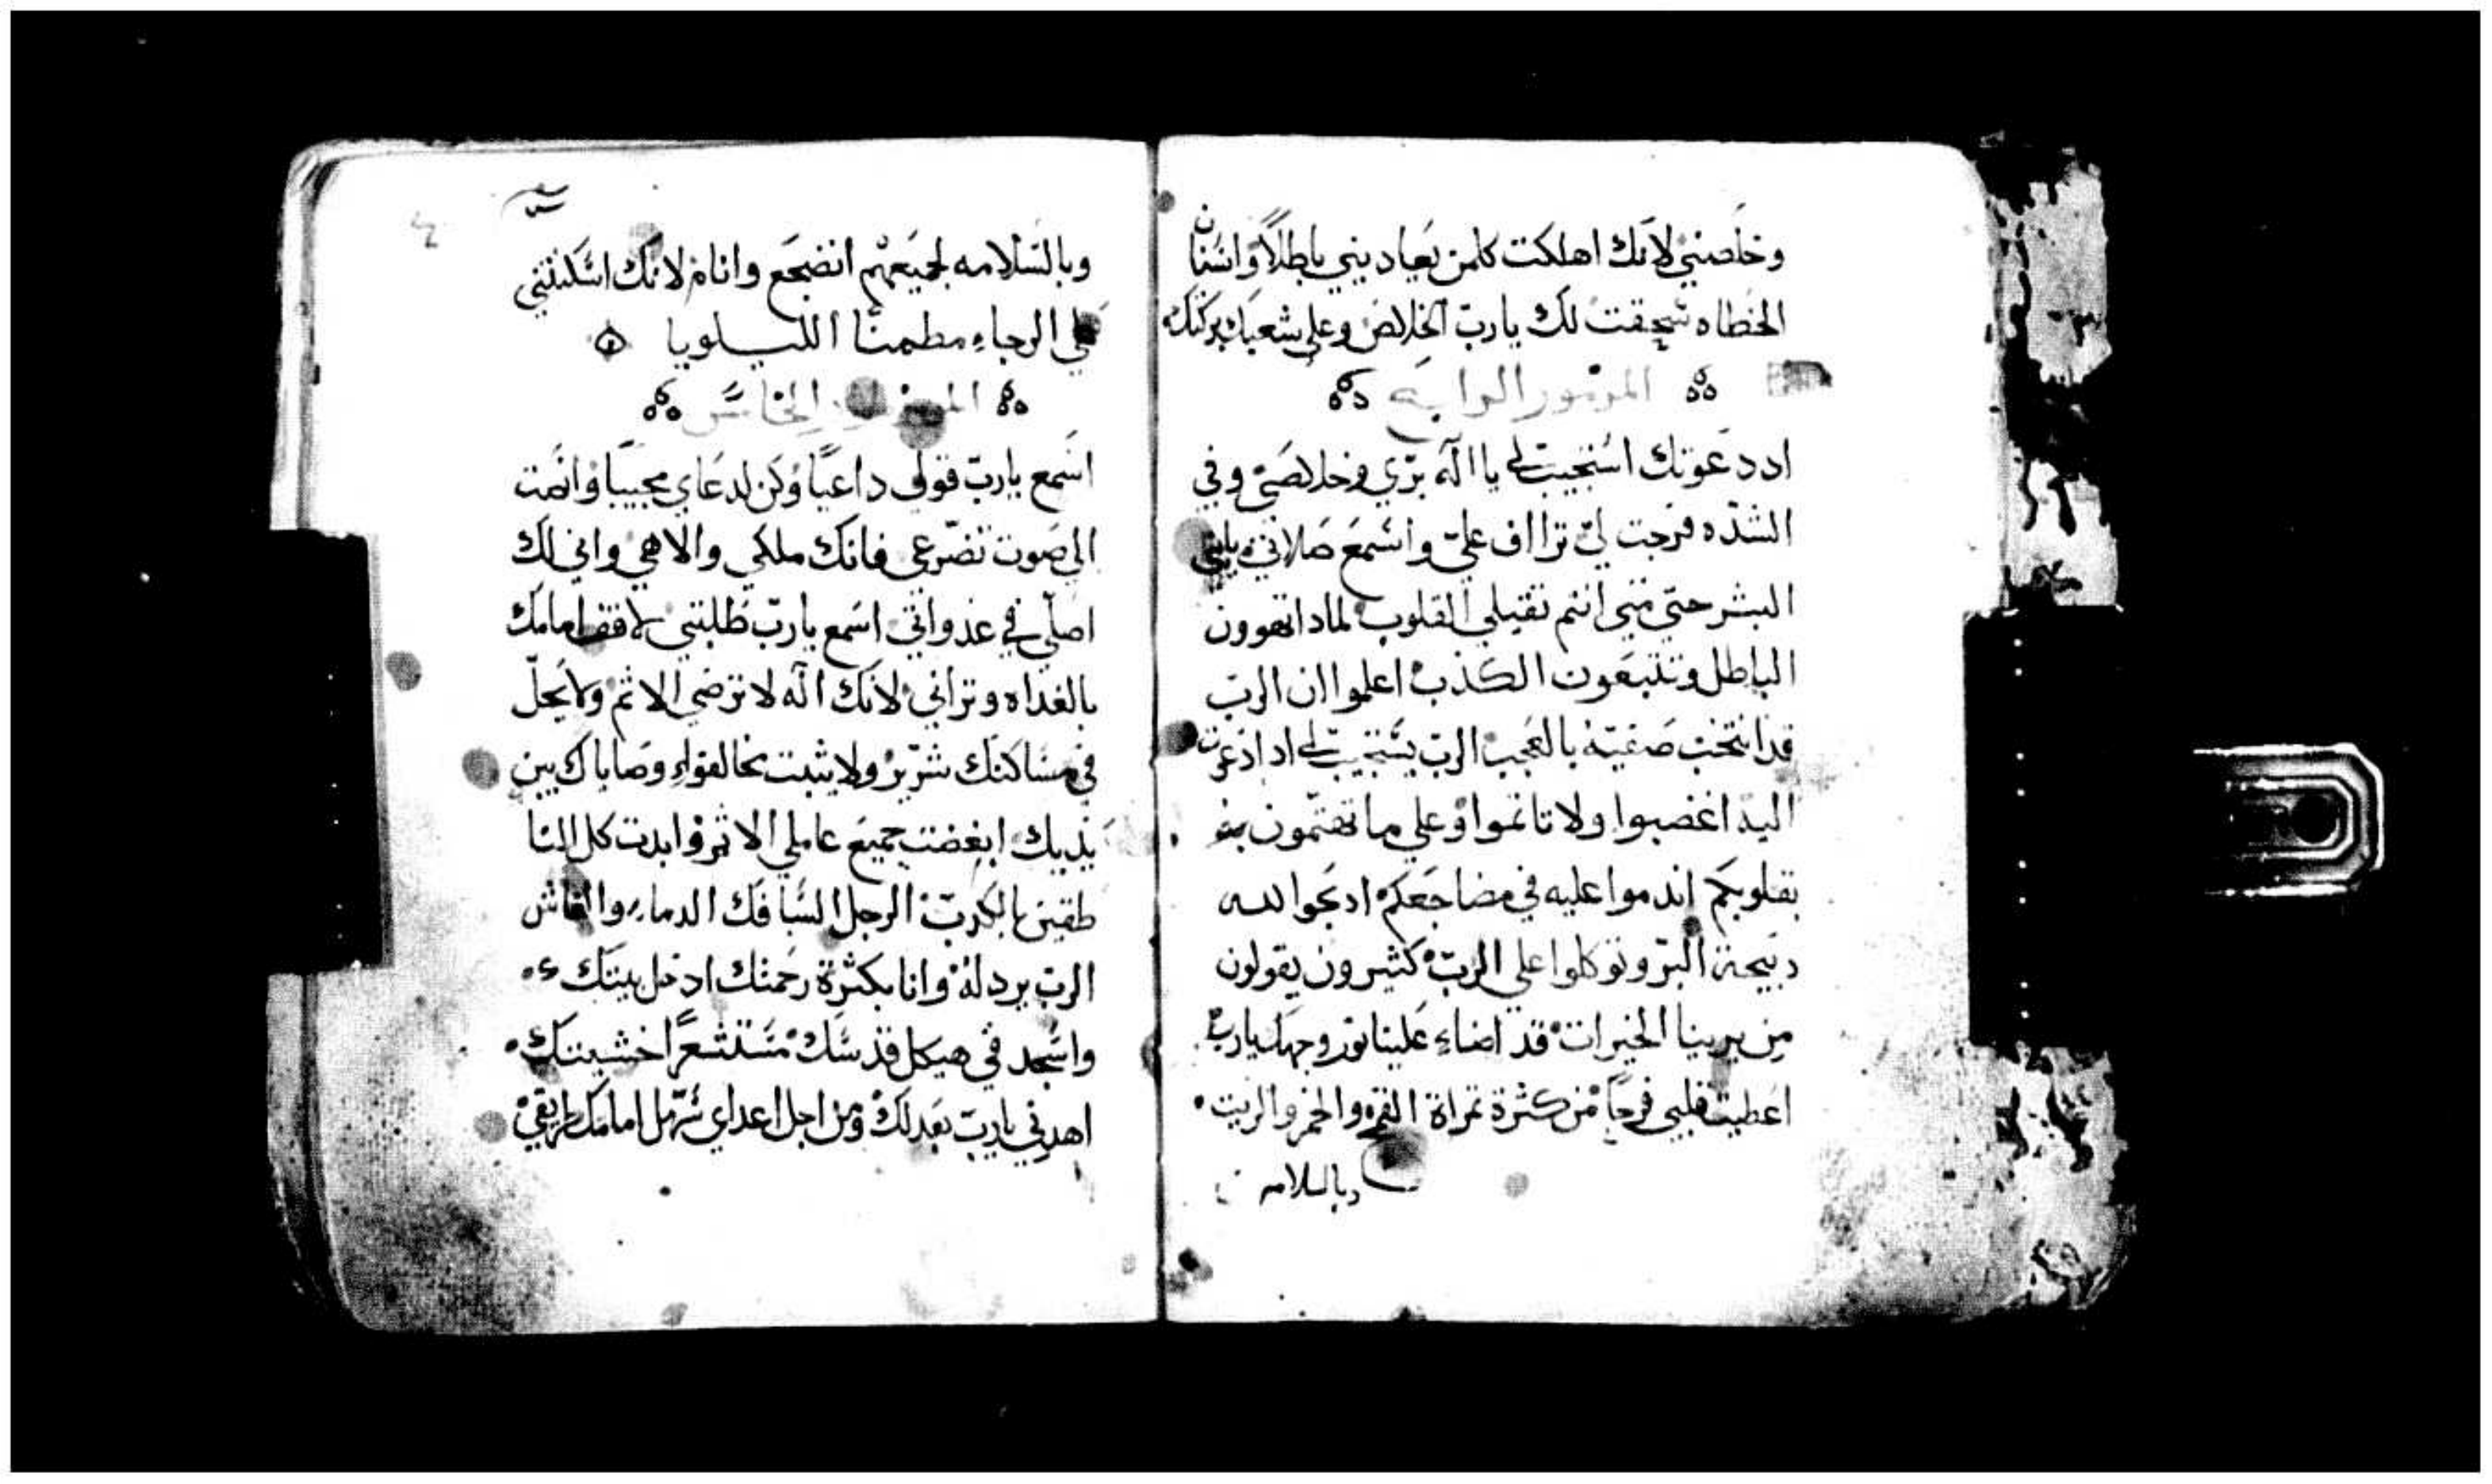 وخلصني لانك اهلكت كلمن يعاديني باطلاً واسنان
الخطاه سحقت لك يارب الخلاص وعلى شعبك بركتك
المزمور الرابع
اد دعوتك استجيب لي يا اله برّي وخلاصي وفي
الشدّه فرجت لي تراف علي واسمع صلاتي يابني
البشر حتى متى انتم تقيلي القلوب لمادا تهوون
الباطل وتتبعون الكذب اعلموا ان الرب
قد انتخب صفيه بالعجب الرب يستجيب لي اد ادعوت
اليه اغضبوا ولا تاتموا وعلى ما تهتمون به
بقلوبكم اندموا عليه في مضاجعكم ادبحوا لله
دبيحة البرّ وتوكلوا على الربّ كثيرون يقولون
من يرينا الخيرات قد اضاء علينا نور وجهك يارب
اعطيت قلبي فرحاً من كثرة تمراة القمح والخمر والزيت
وبالسلامه
وبالسّلامه لجميعهم انضجع وانام لانك اسكنتني
على الرجاء مطمنًا الليلويا
المزمور الخامس
اسمع يارب قولي داعيًا وكن لدعاي مجيبًا وانصت
الى صوت تضرّعي فانك ملكي والاهي واني لك
اصلّي في غدواتي اسمع يارب طلبتي لاقف امامك
بالغداه وتراني لانك اله لا ترضى الاثم ولا يحلّ
في مساكنك شرّير ولا يثبت مخالفوا وصاياك بين
يديك ابغضت جميع عاملي الاثم وابدت كل النا
طقين بالكدب الرجل السّافك الدماء والغاش
الرب يردله وانا بكثرة رحمتك ادخل بيتك
واسجد في هيكل قدسك مستشعرًا خشيتك
اهدني يارب بعدلك ومن اجل اعداي سهّل امامك طريقي